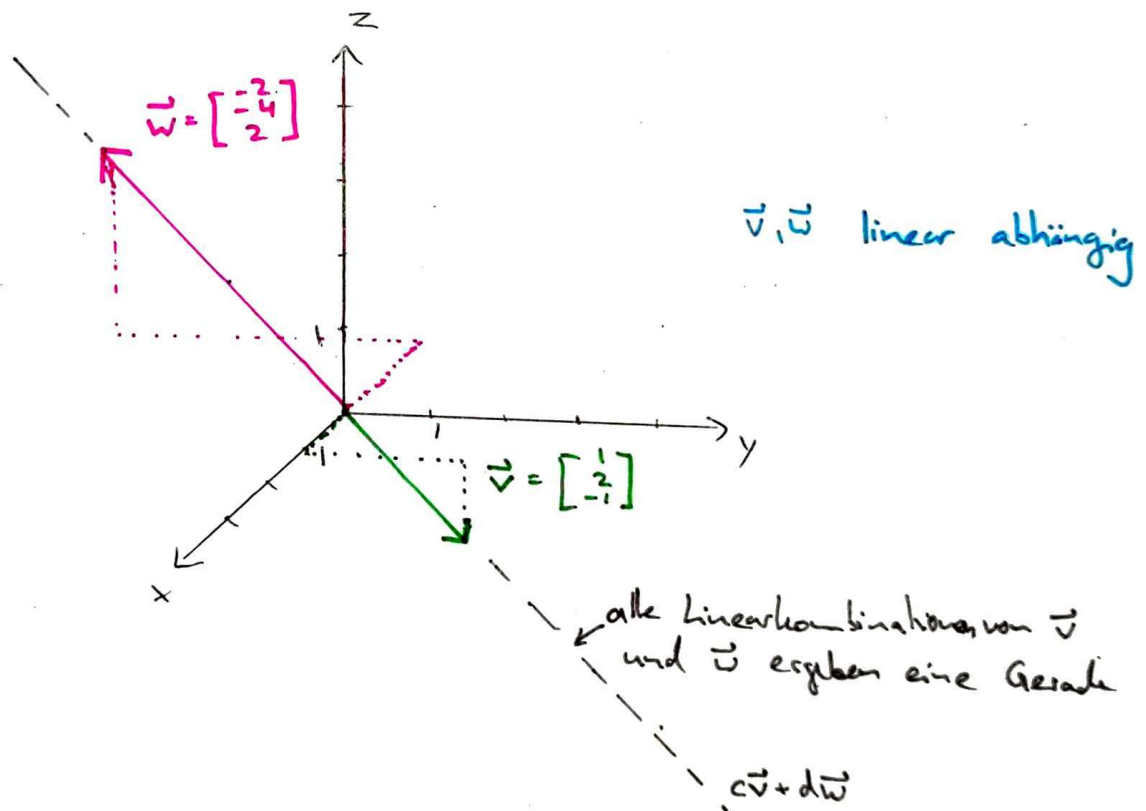 z
w⃗ = [-2 -4 2]
v⃗, w⃗ linear abhängig
1
1
y
1
v⃗ = [1 2 -1]
x
alle Linearkombinationen von v⃗
und w⃗ ergeben eine Gerade
cv⃗ + dw⃗